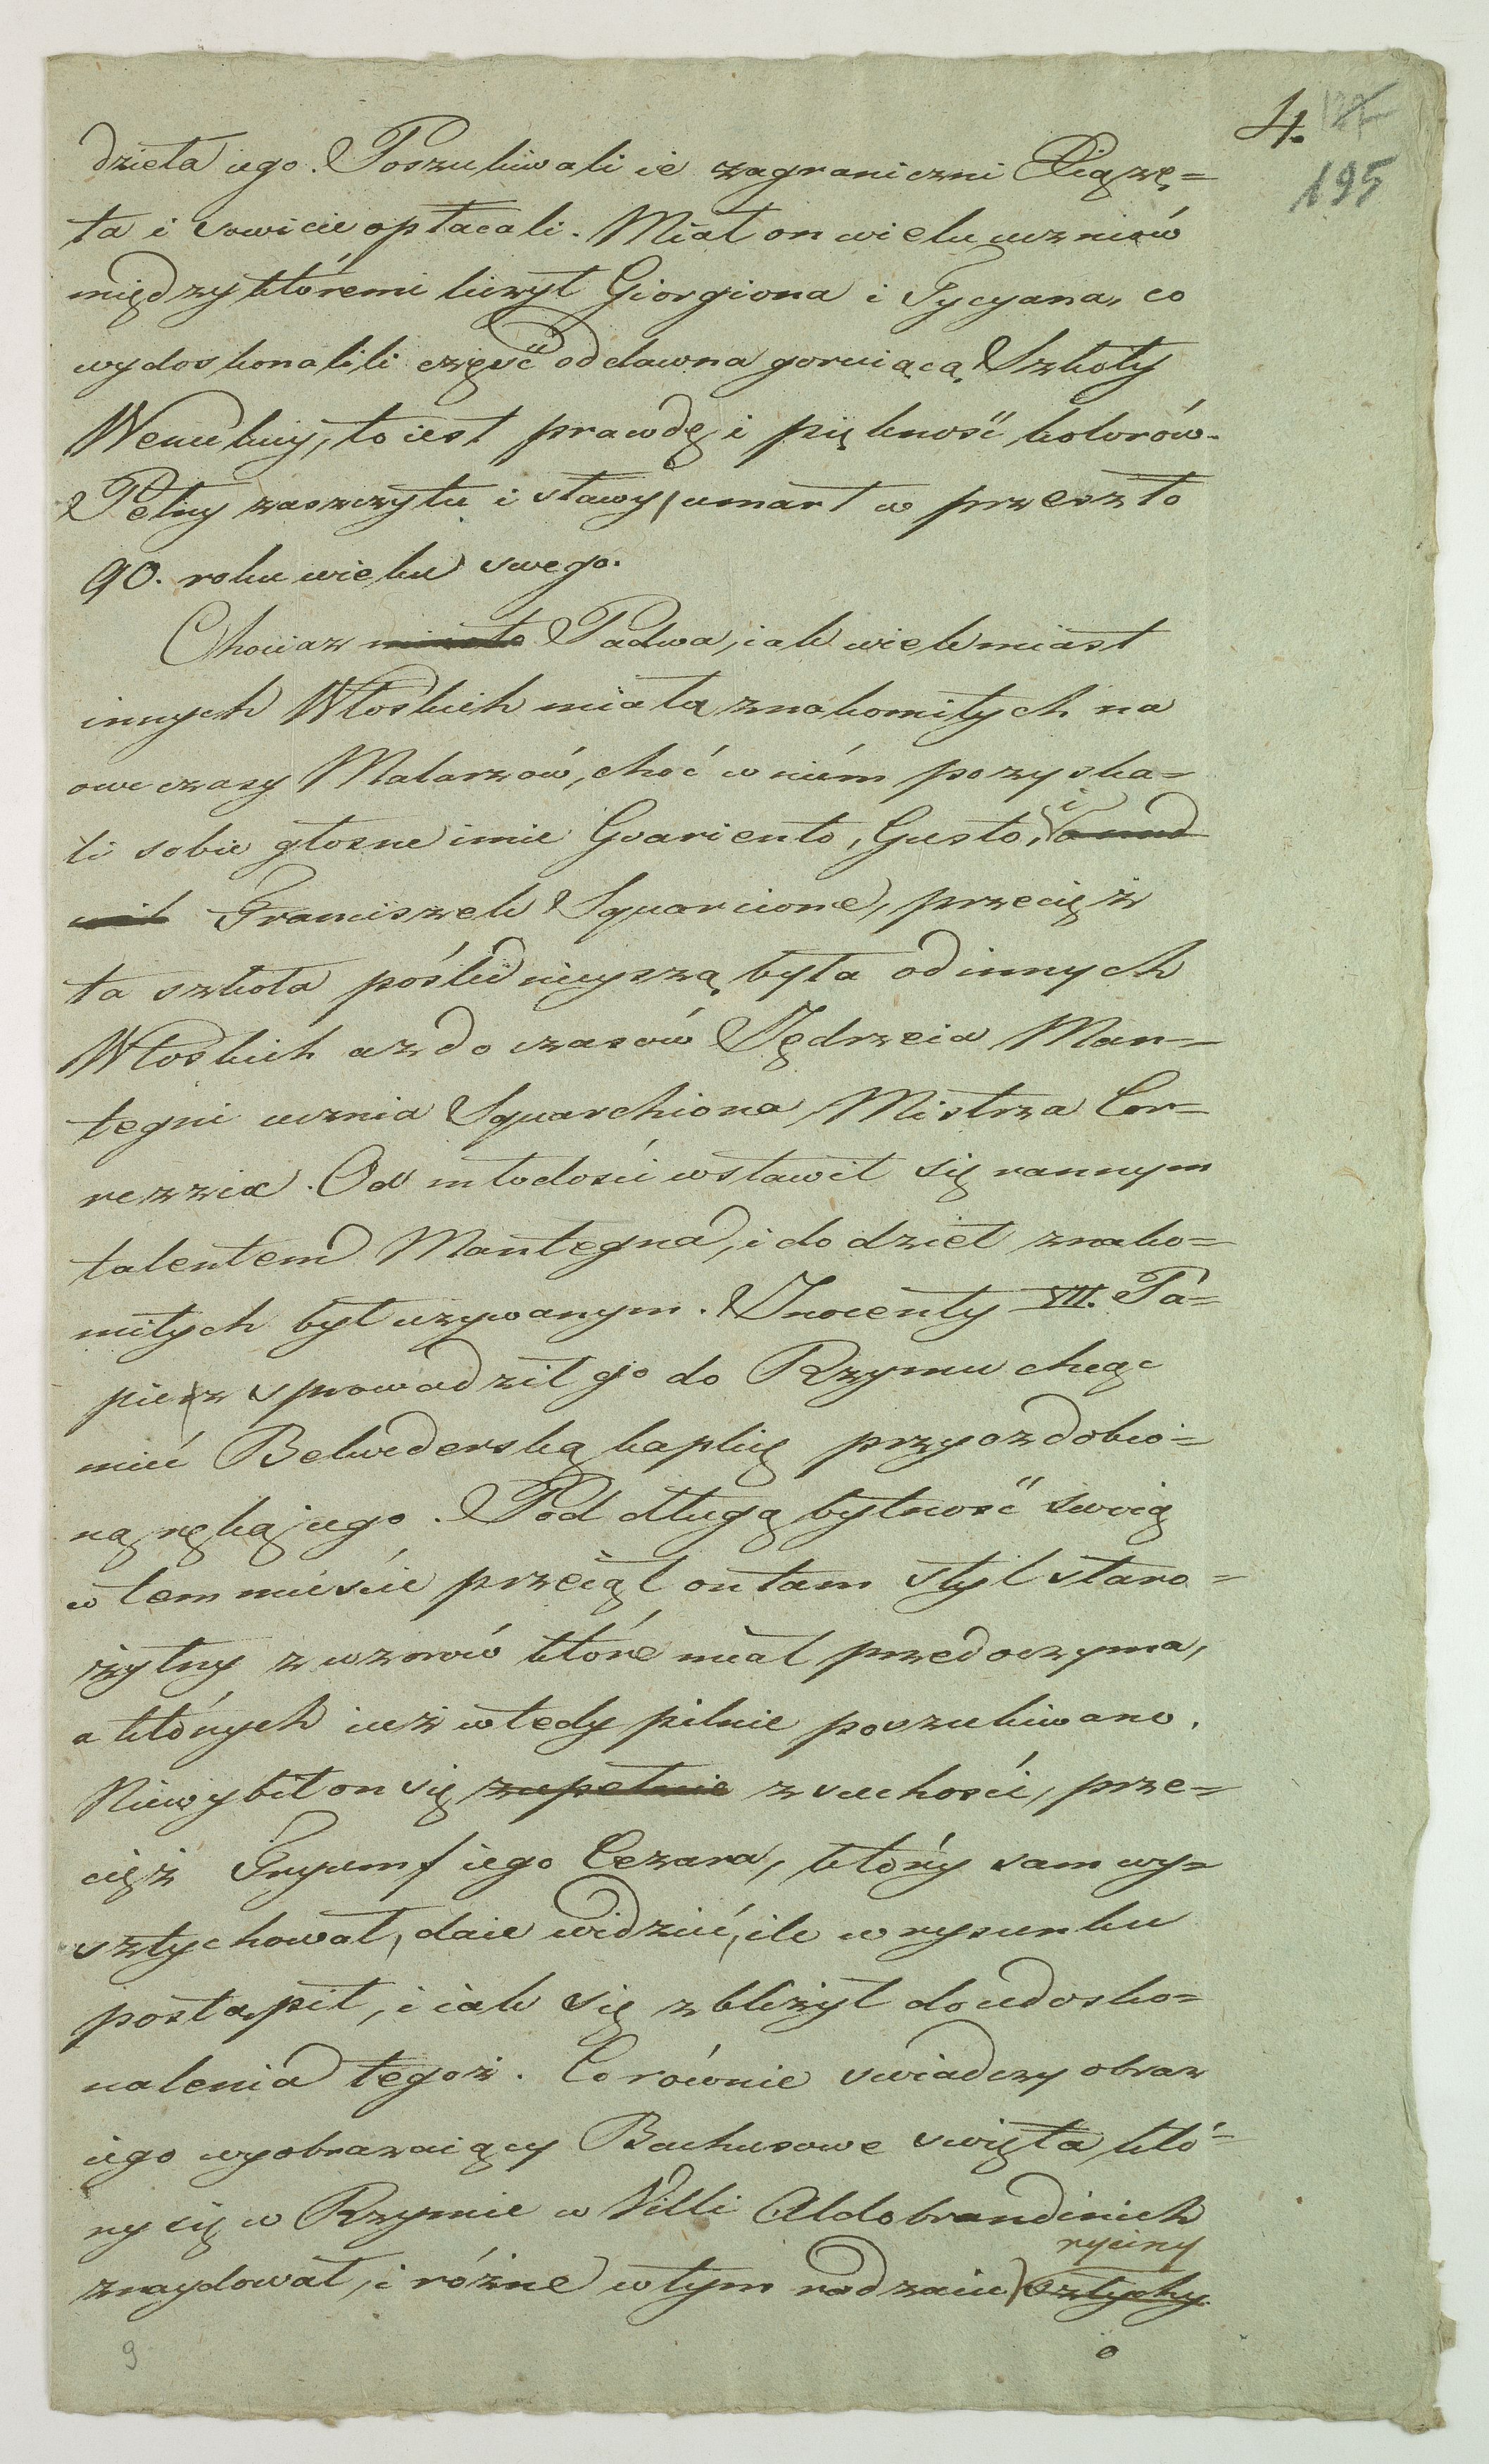 4. 127
195
dzieła iego. Poszukiwali ie zagraniczni Xiązę=
ta i sowicie opłacali. Miał on wielu uczniów
między któremi liczył Giorgiona i Tycyana, co
wydoskonalili część oddawna goruiącą Szkoły
Weneckiy, to iest prawdę i piękność kolorów.
Pełny zaszczytu i sławy, umarł w przeszło
90. roku wieku swego.
Chociaz miasto Padwa, iak wiele miast
innych Włoskich miała znakomitych na
owe czasy Malarzów, choć w niém pozyska=
li sobie głosne imie Gvariento, Gusto, i
Franciszek Squarcione, przecięż
ta szkoła poślednieyszą była od innych
Włoskich az do czasów Jędrzeia Man=
tegni ucznia Squarchiona, Mistrza Cor=
rezzia. Od młodości wsławił się rannym
talentem Mantegna, i do dzieł znako=
mitych był uzywanym. Inocenty VII. Pa=
pież sprowadził go do Rzymu chcąc
mieć Belwederską kaplicę przyozdobio=
ną ręką iego. Pod długą bytność swoią
w tem mieście przeiął on tam styl staro=
żytny z wzorów które miał przed oczyma,
a których iuż wtedy pilnie poszukiwano.
Niewybił on się zupełnie z suchości, prze=
cięż Tryumf iego Cezara, który sam wy=
sztychował, daie widzieć, ile w rysunku
postąpił, i iak się zbliżył do udosko=
nalenia tegoż. Co równie swiadczy obraz
iego wyobrazaiący Bachusowe swięta, któ=
ry się w Rzymie w Villi Aldobrandinich
ryciny
znaydował, i różne w tym rodzaiu sztychy.
9 o